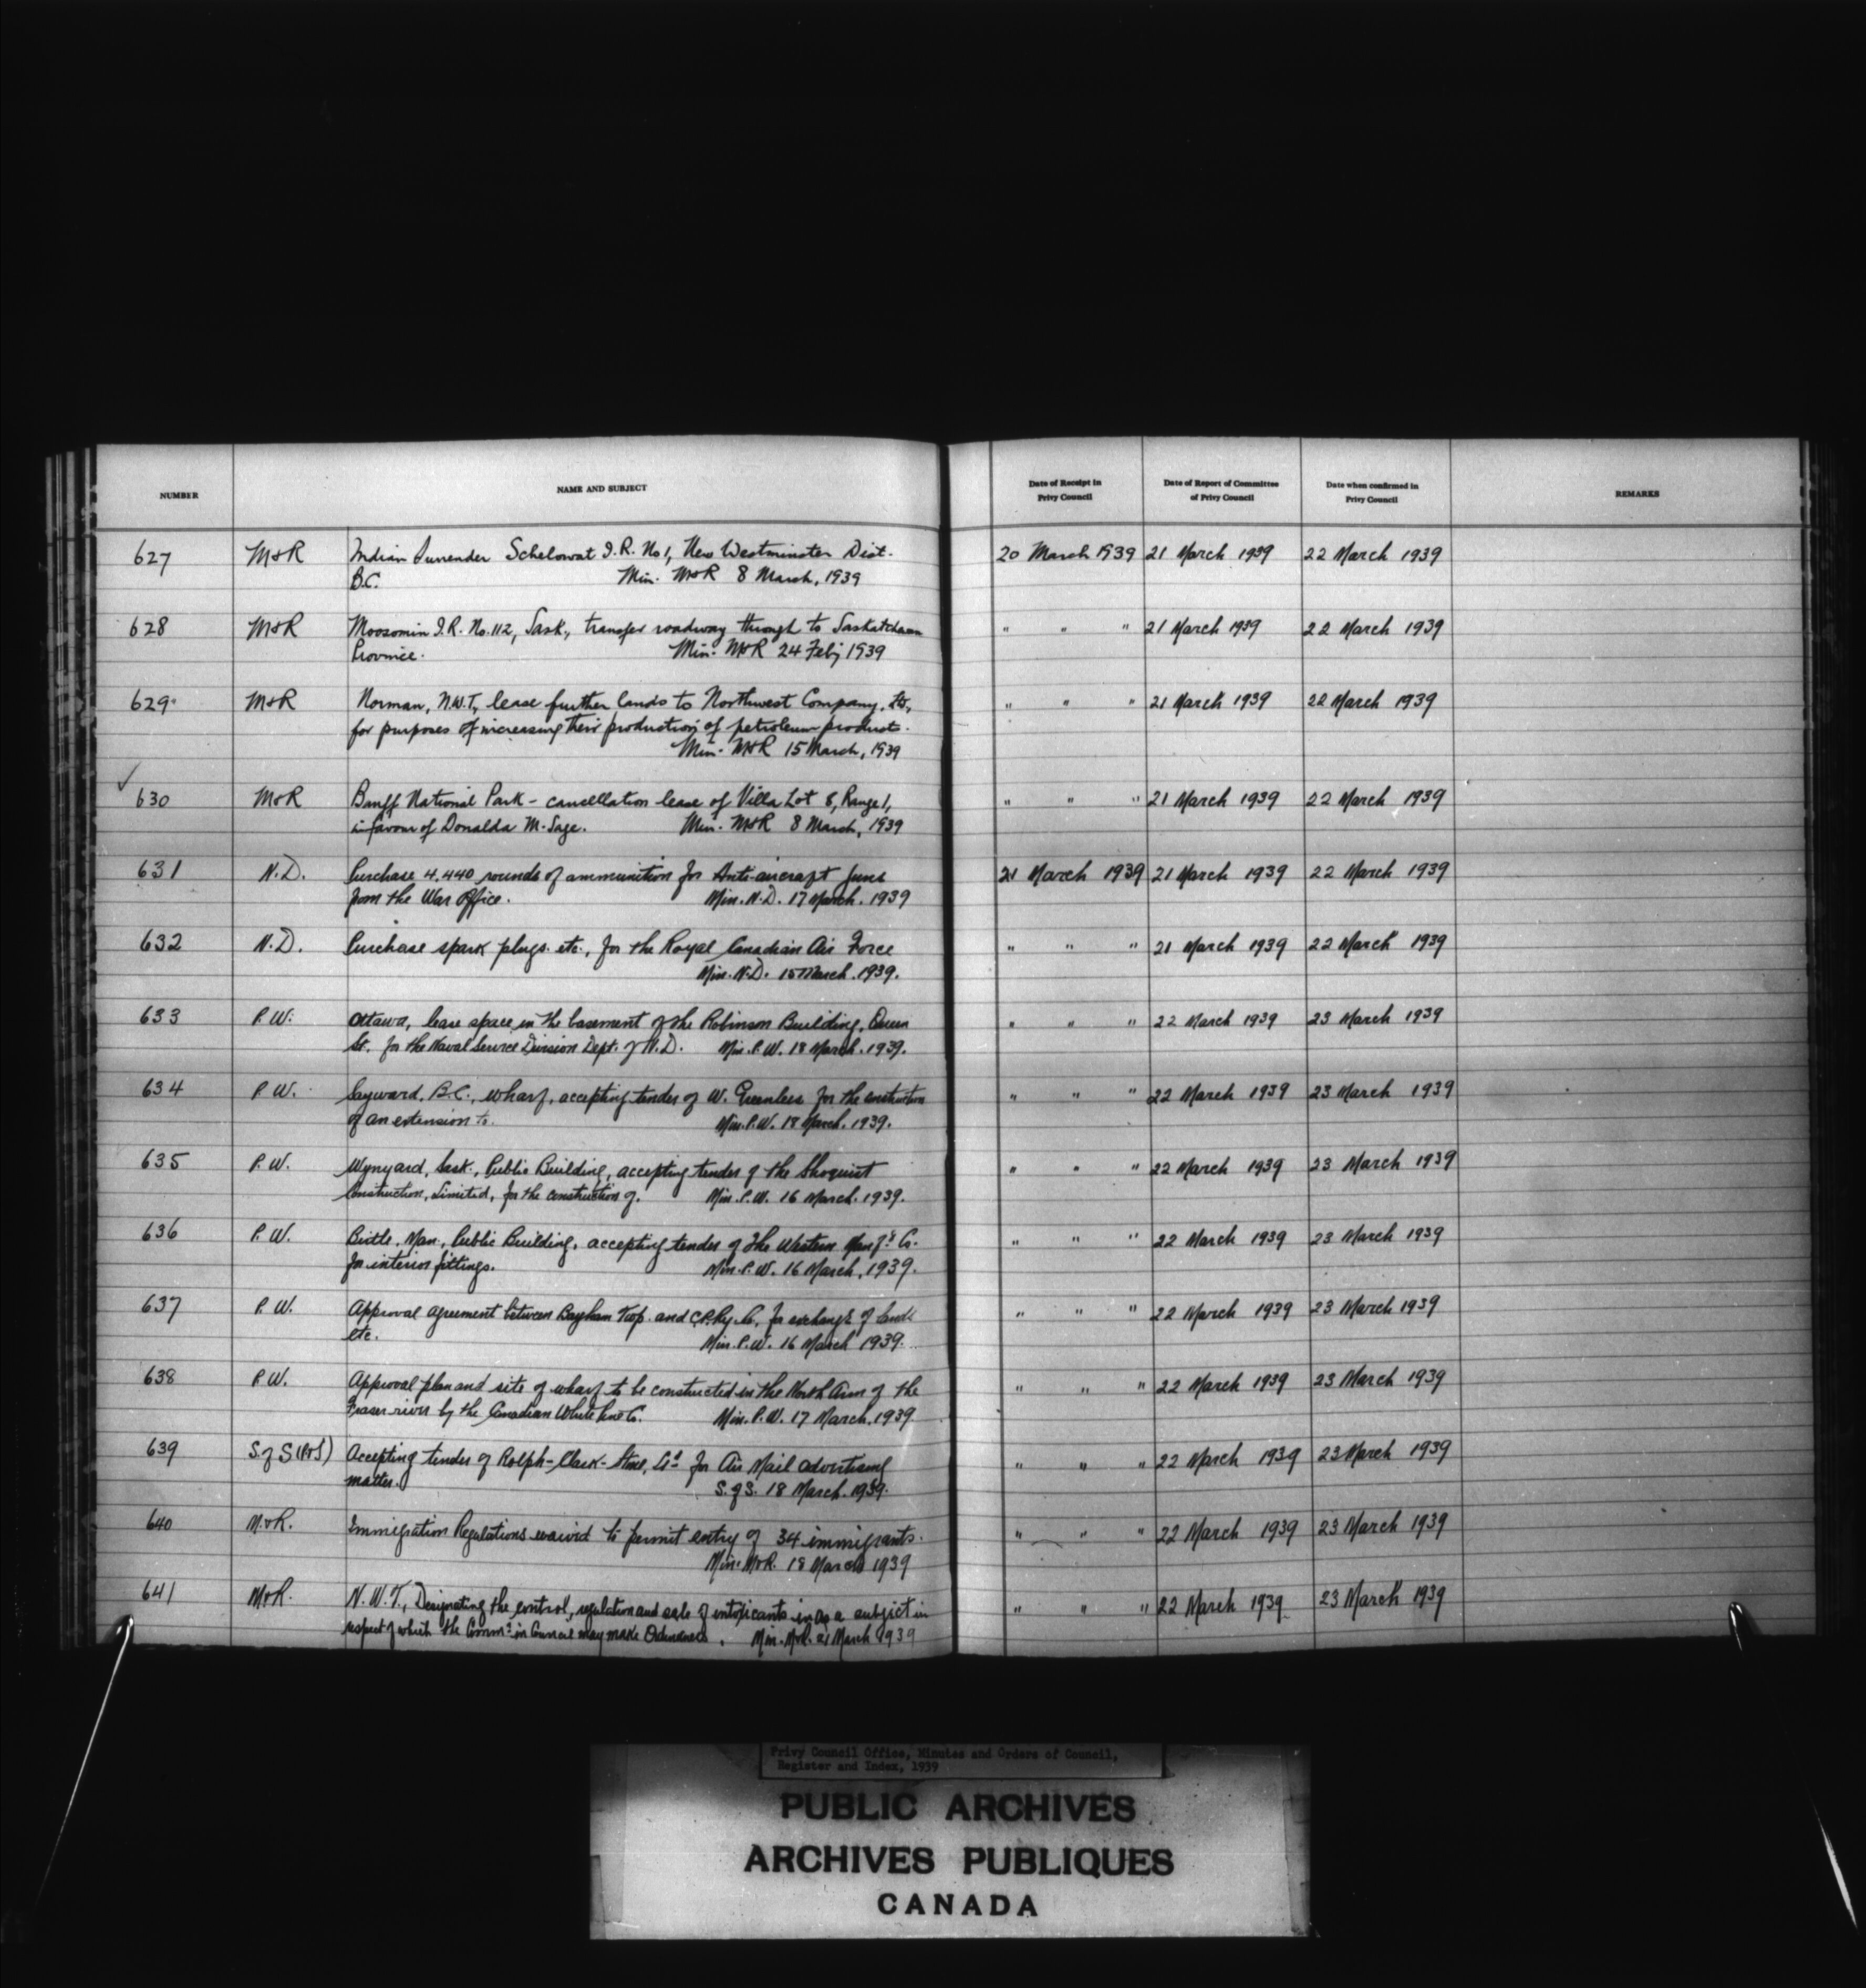 NUMBER NAME AND SUBJECT Date of Receipt in Privy Council Date of Report of Committee of Privy Council Date when confirmed in Privy Council REMARKS
627 M&R Indian Surrender Schelowat I.R. No 1, New Westminster Dist. 20 March 1939 21 March 1939 22 March 1939
B.C. Min. M&R 8 March, 1939
628 M&R Moosomin I.R. No. 112, Sask., transfer roadway through to Saskatchewan " " " 21 March 1939 22 March 1939
Province. Min. M&R 24 Feby 1939
629 M&R Norman, N.W.T, lease further lands to Northwest Company, Ltd, " " " 21 March 1939 22 March 1939
for purposes of increasing their production of petroleum product.
Min. M&R 15 March, 1939
630 M&R Banff National Park - cancellation lease of Villa Lot 8, Range 1, " " " 21 March 1939 22 March 1939
in favour of Donalda M. Sage. Min. M&R 8 March, 1939
631 N.D. Purchase 4.440 rounds of ammunition for Anti-aircraft guns 21 March 1939 21 March 1939 22 March 1939
from the War Office. Min. N.D. 17 March. 1939
632 N.D. Purchase spark plugs etc., for the Royal Canadian Air Force " " " 21 March 1939 22 March 1939
Min. N.D. 15 March. 1939.
633 P.W. Ottawa, lease space in the basement of the Robinson Building, Queen " " " 22 March 1939 23 March 1939
St. for the Naval Service Division Dept. of N.D. Min. P.W. 18 March. 1939.
634 P.W. Sayward, B.C., wharf, accepting tender of W. Greenlees for the construction " " " 22 March 1939 23 March 1939
of an extension to. Min. P.W. 18 March. 1939.
635 P.W. Wynyard, Sask., Public Building, accepting tender of the Shoquist " " " 22 March 1939 23 March 1939
Construction, Limited, for the construction of. Min. P.W. 16 March. 1939.
636 P.W. Birtle, Man., Public Building, accepting tender of The Western Manfg Co. " " " 22 March 1939 23 March 1939
for interior fittings. Min. P.W. 16 March, 1939.
637 P.W. Approval agreement between Bayham Twp. and C.P.Ry. Co, for exchange of lands " " " 22 March 1939 23 March 1939
etc. Min. P.W. 16 March 1939.
638 P.W. Approval plan and site of wharf to be constructed in the North Arm of the " " " 22 March 1939 23 March 1939
Fraser river by the Canadian White Pine Co. Min. P.W. 17 March. 1939
639 S of S (P&S) Accepting tender of Rolph-Clark-Stone, Ltd for Air Mail advertising " " " 22 March 1939 23 March 1939
matter. S. of S. 18 March. 1939.
640 M.&R. Immigration Regulations waived to permit entry of 34 immigrants. " " " 22 March 1939 23 March 1939
Min. M&R. 18 March 1939
641 M&R. N.W.T., Designating the control, regulation and sale of intoxicants in as a subject in " " " 22 March 1939 23 March 1939
respect of which the Commr in Council may make Ordinances. Min. M&R. 21 March 1939
Privy Council Office, Minutes and Orders of Council,
Register and Index, 1939
PUBLIC ARCHIVES
ARCHIVES PUBLIQUES
CANADA